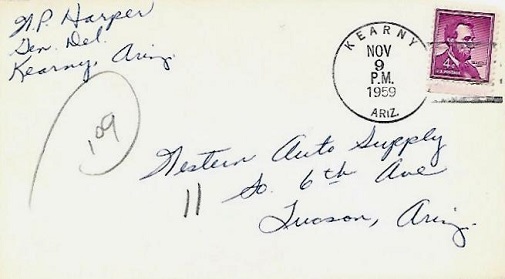 N.P. Harper
Gen. Del.
Kearny, Ariz.
KEARNY
NOV
9
P.M.
1959
ARIZ.
4¢
U.S. POSTAGE
109
Western Auto Supply
11 So. 6th Ave
Tucson, Ariz.